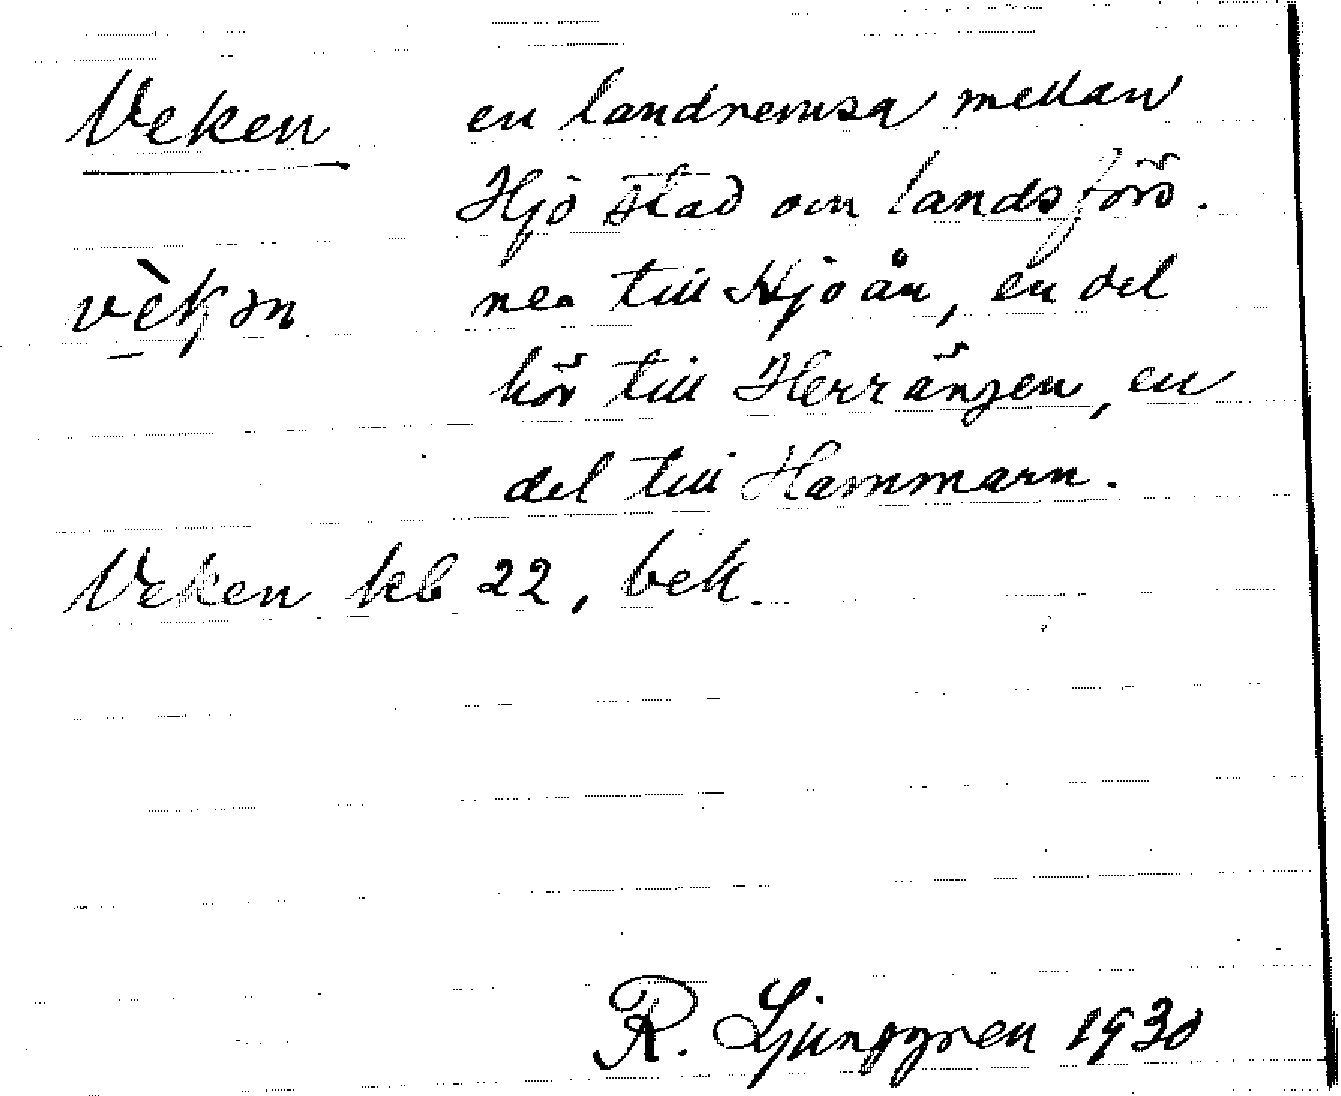 Veken en landremsa mellan
Hjo stad och landsförs.
vèkən ner till Hjoån, en del
hör till Herrängen, en
del till Hammarn.
Veken kb 22, bek.
R. Ljunggren 1930